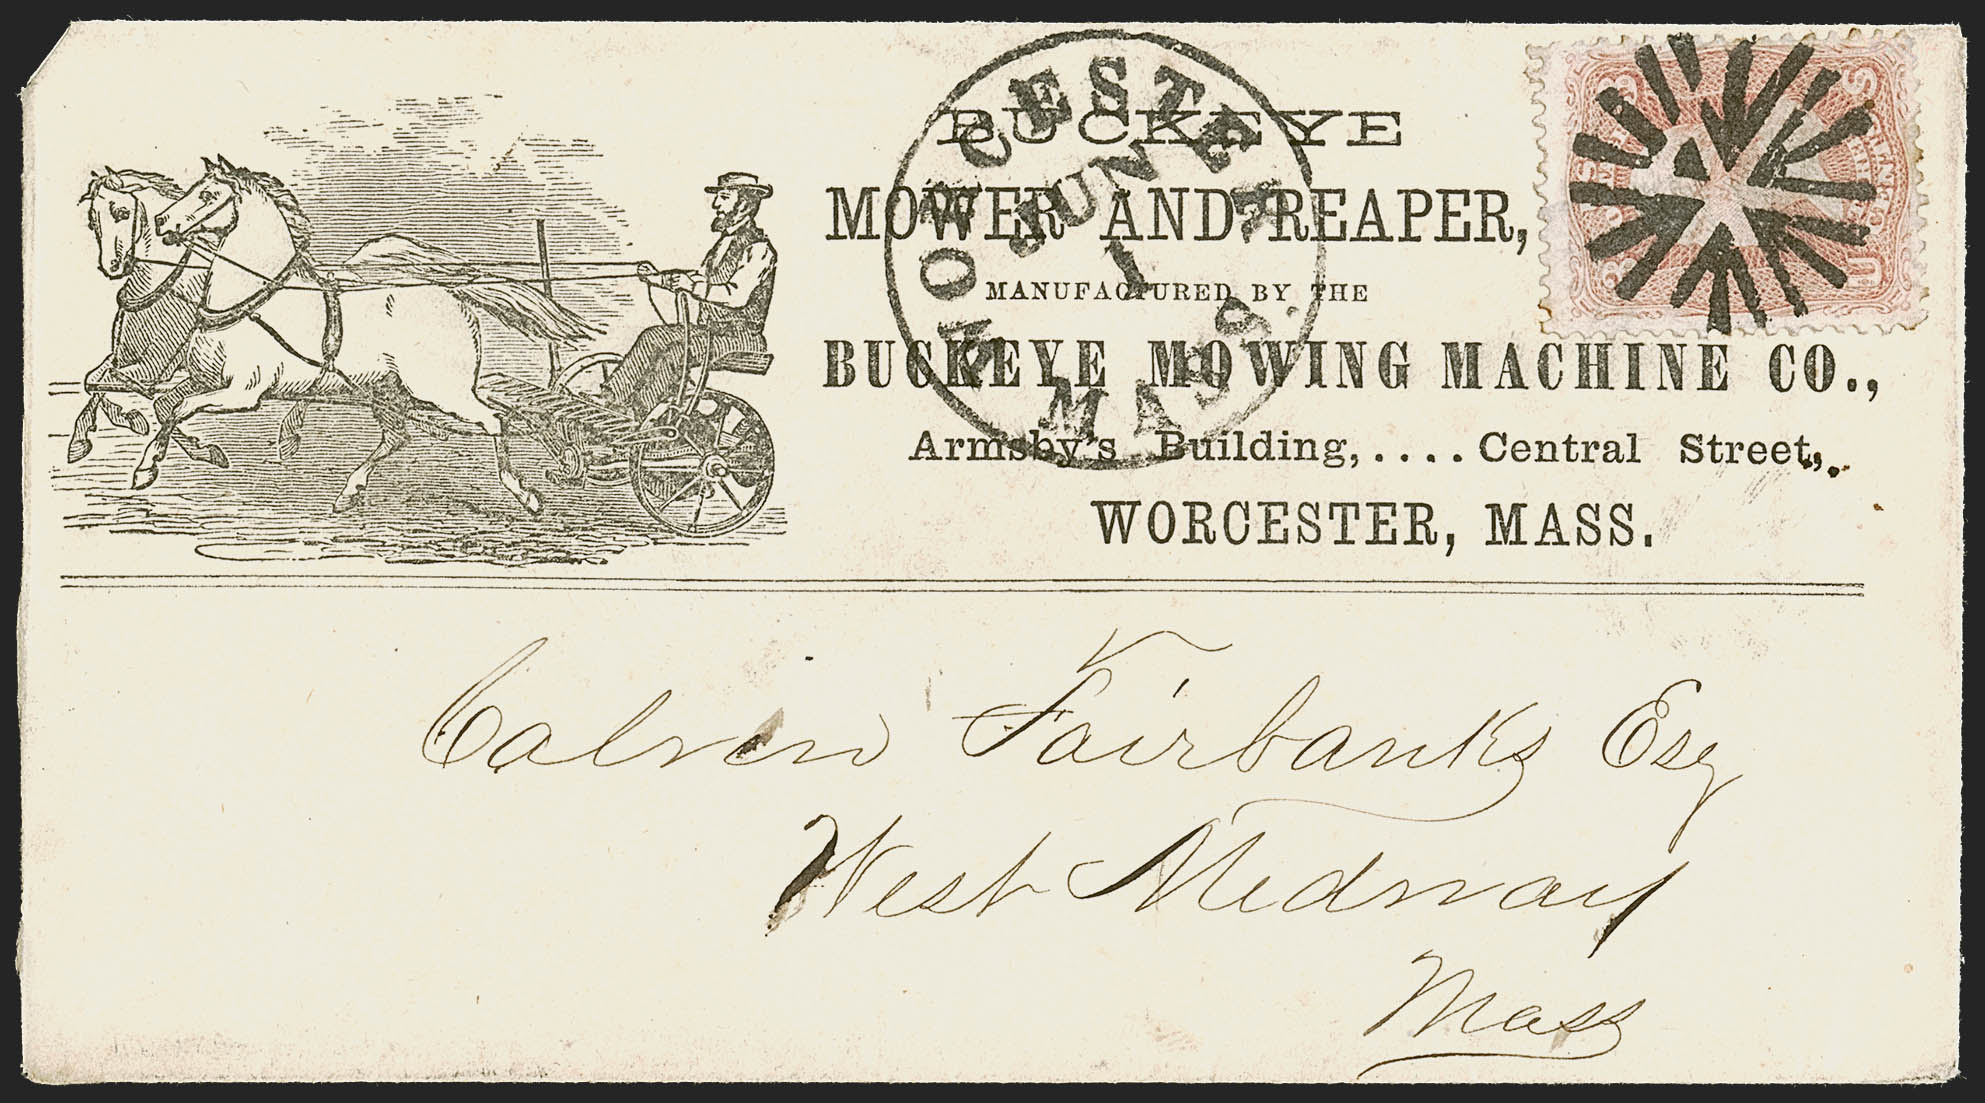 BUCKEYE
MOWER AND REAPER,
MANUFACTURED BY THE
BUCKEYE MOWING MACHINE CO.,
Armsby's Building,....Central Street,
WORCESTER, MASS.
WORCESTER
JUN
1
MASS
Calvin Fairbanks Esq
West Medway
Mass